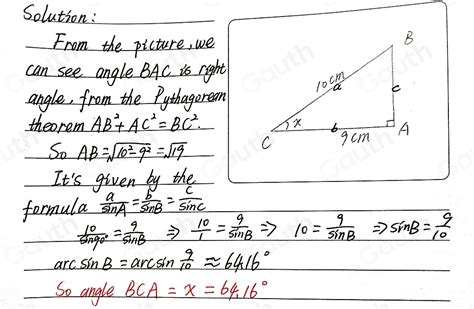 Solution:
From the picture, we
can see angle BAC is right
angle, from the Pythagorean
theorem AB²+AC²=BC².
So AB=√10²-9²=√19
It's given by the
formula a/sinA=b/sinB=c/sinC
10/sin90°=9/sinB ⇒ 10/1=9/sinB ⇒ 10=9/sinB ⇒ sinB=9/10
arc sin B = arcsin 9/10 ≈ 64.16°
So angle BCA = x = 64.16°
B
10cm
a
c
x
C
b
9cm
A
Gauth